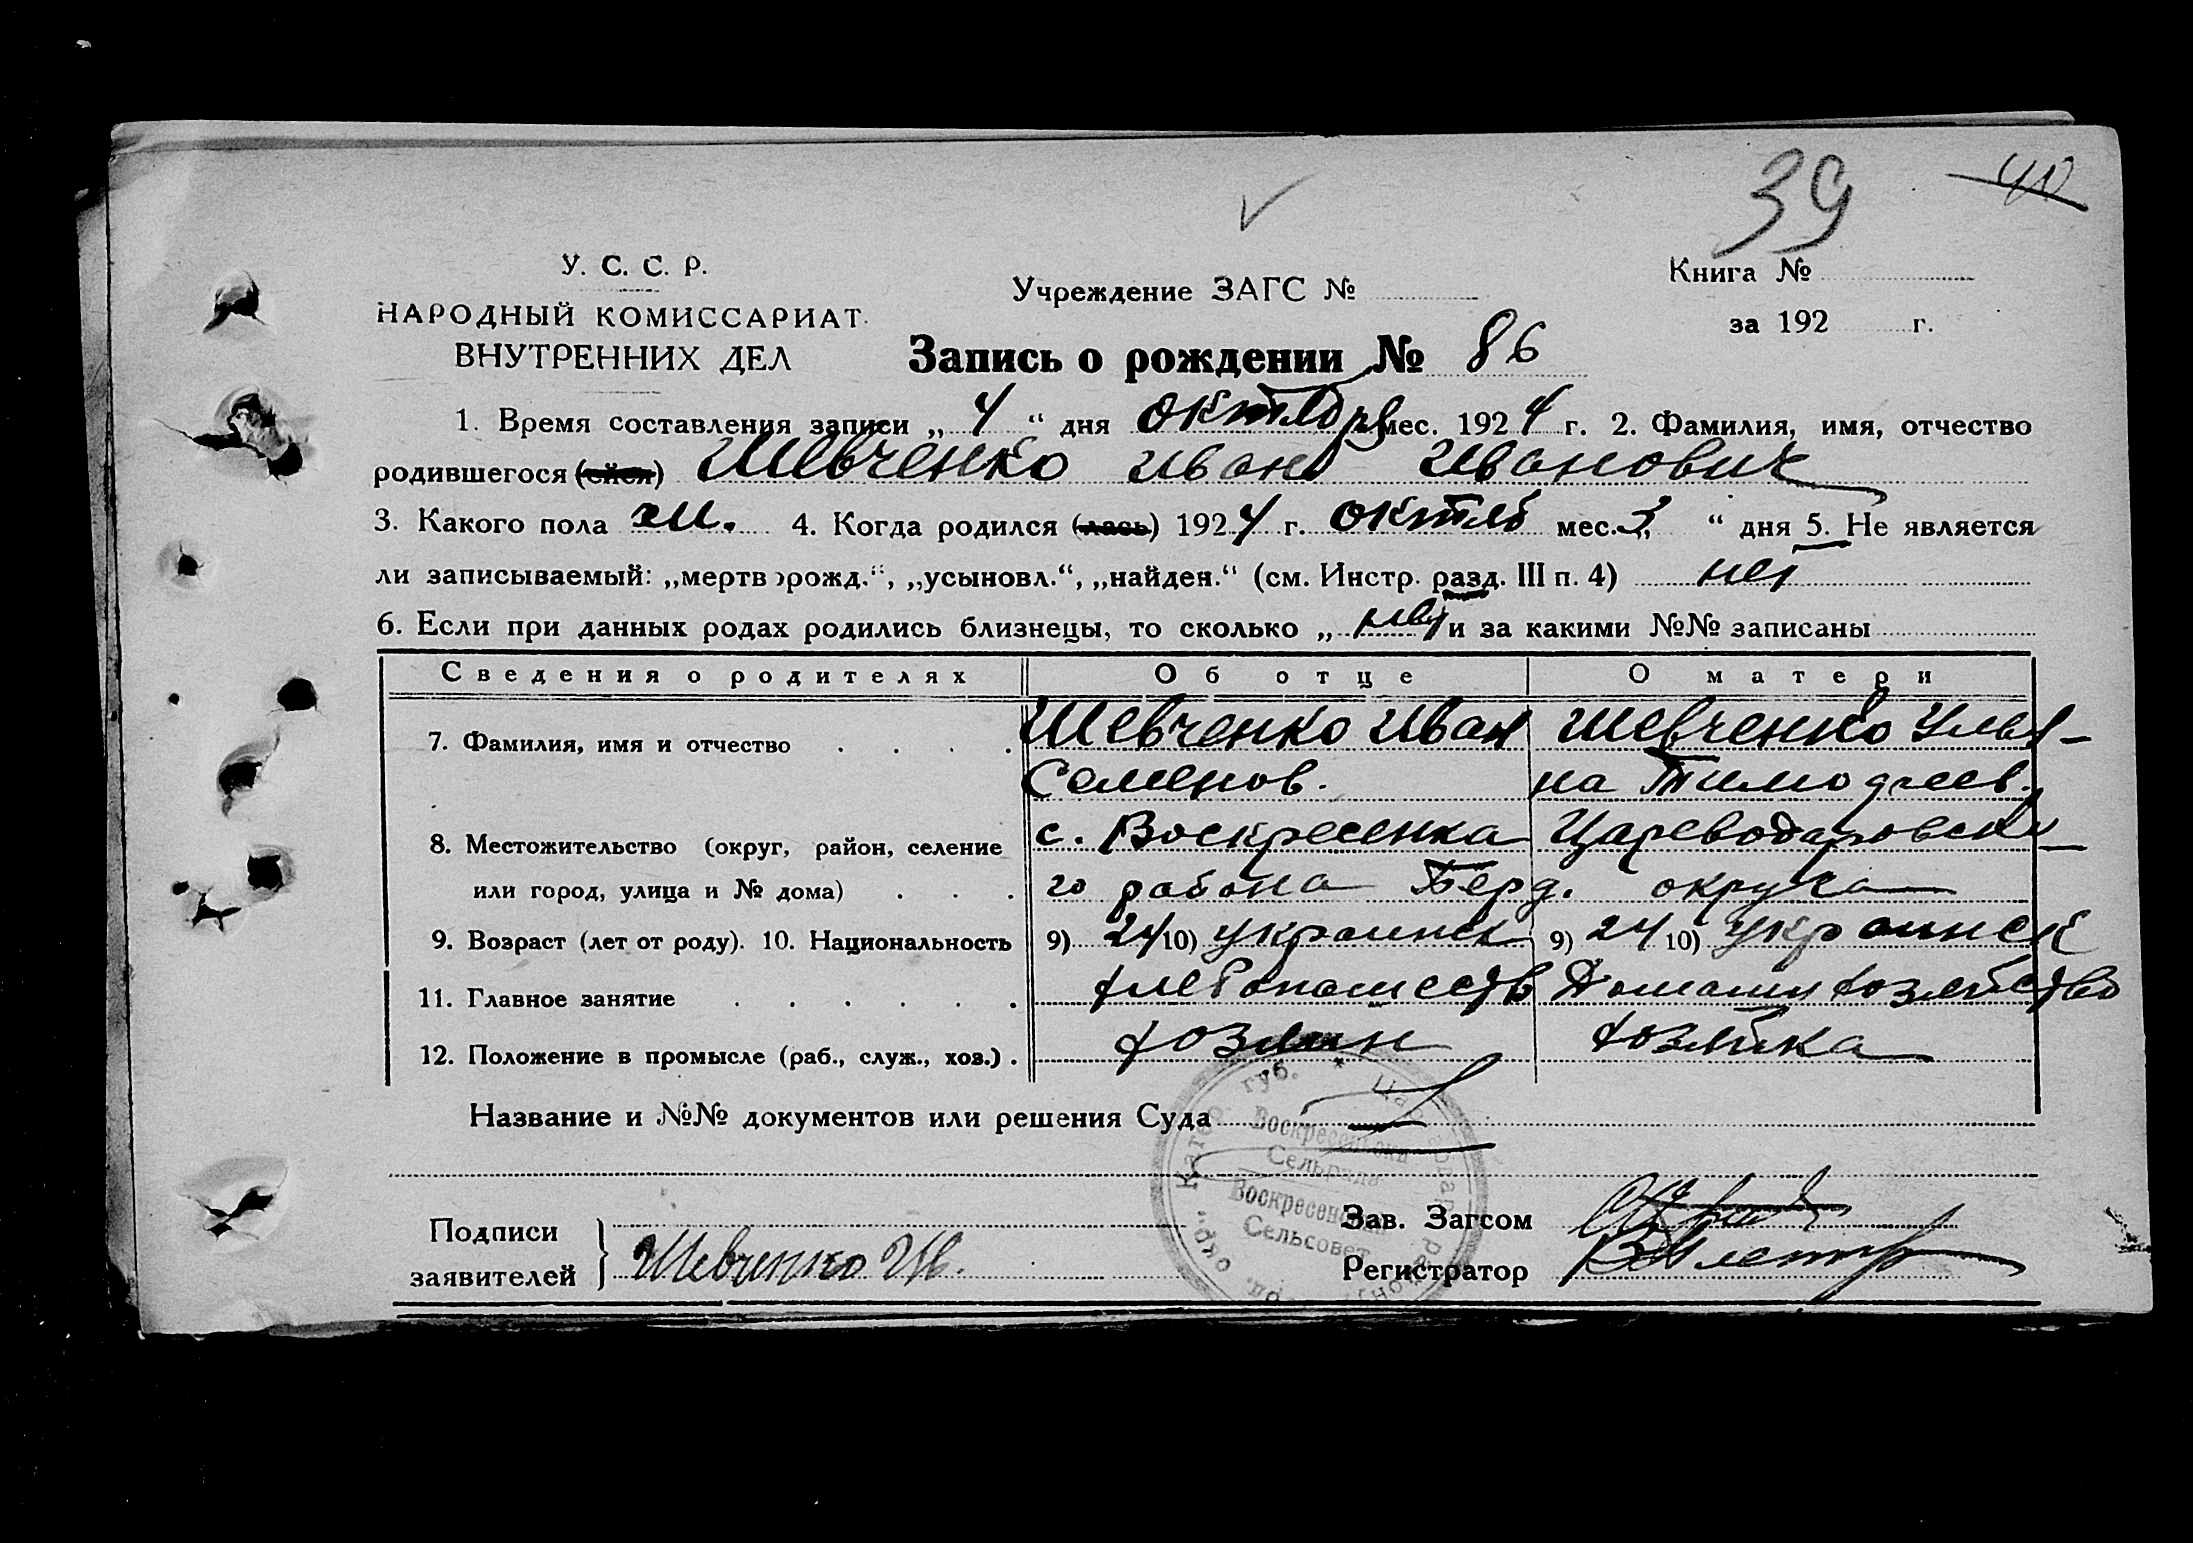 39 40
У. С. С. Р.
НАРОДНЫЙ КОМИССАРИАТ
ВНУТРЕННИХ ДЕЛ
Учреждение ЗАГС №
Книга №
за 192 г.
Запись о рождении № 86
1. Время составления записи „ 4 “ дня октября мес. 1924 г. 2. Фамилия, имя, отчество
родившегося (ейся) Шевченко Иван Иванович
3. Какого пола м. 4. Когда родился (лась) 1924 г. октяб мес. „3 “ дня 5. Не является
ли записываемый: „мертворожд.“, „усыновл.“, „найден.“ (см. Инстр. разд. III п. 4) нет
6. Если при данных родах родились близнецы, то сколько „ и за какими №№ записаны
Сведения о родителях Об отце О матери
7. Фамилия, имя и отчество . . . . Шевченко Иван Шевченко Улья-
Семенов. на Тимофеев.
8. Местожительство (округ, район, селение с. Воскресенка Цареводаровско
или город, улица и № дома) . . . го района Берд. округа
9. Возраст (лет от роду). 10. Национальность 9) 24 10) украинск 9) 24 10) украинск
11. Главное занятие . . . . . . хлебопашеств Домашн хозяйство
12. Положение в промысле (раб., служ., хоз.) . хозяин хозяйка
Название и №№ документов или решения Суда
губ. * Цар
Воскресенська
Сельрада
Воскресенский
Сельсовет
Подписи
заявителей } Шевченко Ив.
Зав. Загсом
Регистратор